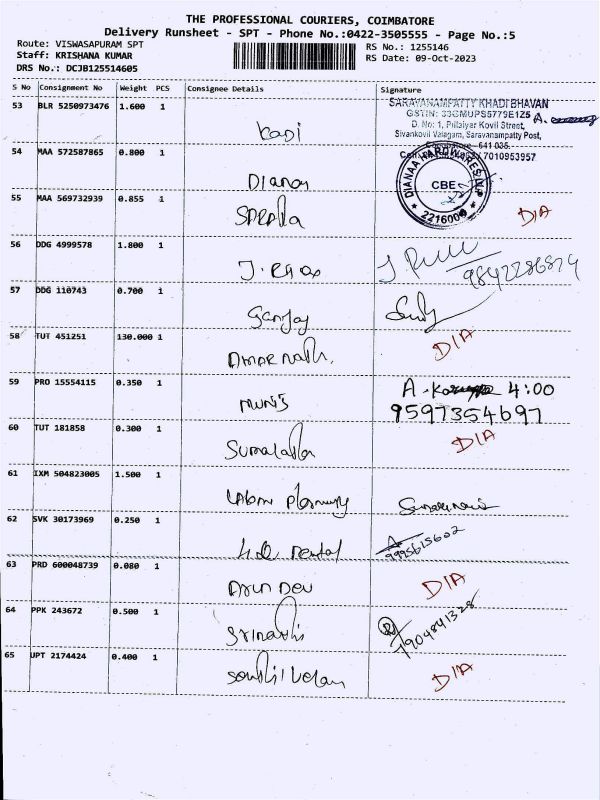 THE PROFESSIONAL COURIERS, COIMBATORE
Delivery Runsheet - SPT - Phone No.:0422-3505555 - Page No.:5
Route: VISWASAPURAM SPT
RS No.: 1255146
Staff: KRISHANA KUMAR
RS Date: 09-Oct-2023
DRS No.: DCJB125514605
S No Consignment No Weight PCS Consignee Details Signature
53 BLR 5250973476 1.600 1
SARAVANAMPATTY KHADI BHAVAN
GSTIN: 33GMUPS5779E1Z5 A.
D. No: 1, Pillaiyar Kovil Street,
Sivankovil Valagam, Saravanampatty Post,
641 035.
7010953957
Kadi
54 MAA 572587865 0.800 1
DIANAA HARDWARES
CBE
2216000
Diana
55 MAA 569732939 0.855 1
DIA
56 DDG 4999578 1.800 1
9842286874
57 DDG 110743 0.700 1
Sanjay
58 TUT 451251 130.000 1
DIA
Amarnath.
59 PRO 15554115 0.350 1
A. 4:00
9597354697
60 TUT 181858 0.300 1
DIA
Sumalatha
61 IXM 504823005 1.500 1
62 SVK 30173969 0.250 1
9995615602
dental
63 PRD 600048739 0.080 1
DIA
Arun Dev
64 PPK 243672 0.500 1
7904841328
65 UPT 2174424 0.400 1
DIA
Senthil Velan